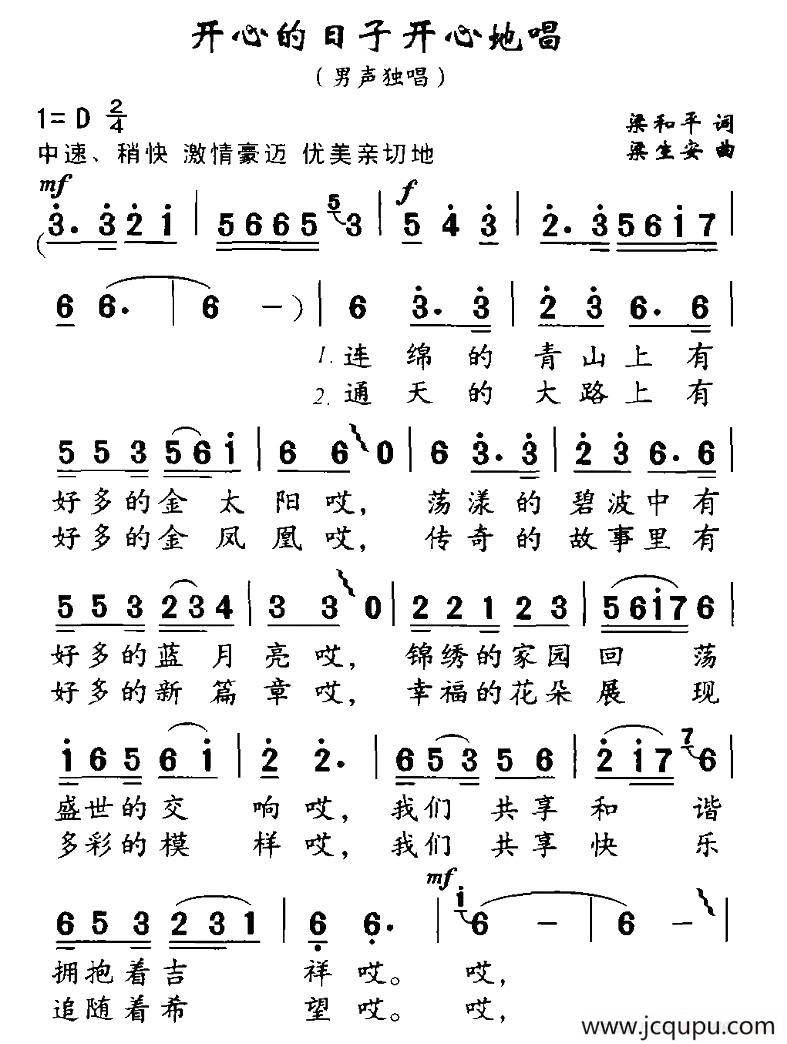 开心的日子开心地唱
（男声独唱）
1=D 2/4
梁和平 词
中速、稍快 激情豪迈 优美亲切地
梁生安 曲
mf f
(3. 3 2 1 | 5665 5 3 | 5 4 3 | 2. 3 5617 |
6 6. | 6 －) | 6 3. 3 | 2 3 6. 6 |
1. 连绵的青山上有
2. 通天的大路上有
5 5 3 5 6 1 | 6 6 0 | 6 3. 3 | 2 3 6. 6 |
好多的金太阳哎，荡漾的碧波中有
好多的金凤凰哎，传奇的故事里有
5 5 3 2 3 4 | 3 3 0 | 2 2 1 2 3 | 5 6 1 7 6 |
好多的蓝月亮哎，锦绣的家园回荡
好多的新篇章哎，幸福的花朵展现
1 6 5 6 1 | 2 2. | 6 5 3 5 6 | 2 1 7 7 6 |
盛世的交响哎，我们共享和谐
多彩的模样哎，我们共享快乐
mf
6 5 3 2 3 1 | 6 6. | 1 6 － | 6 － |
拥抱着吉祥哎。哎，
追随着希望哎。哎，
www.jcqupu.com